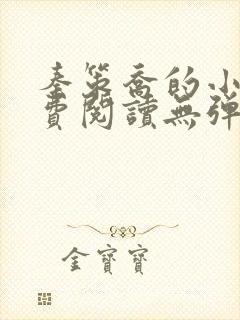 秦策喬的小
費閱讀無彈
金寶寶